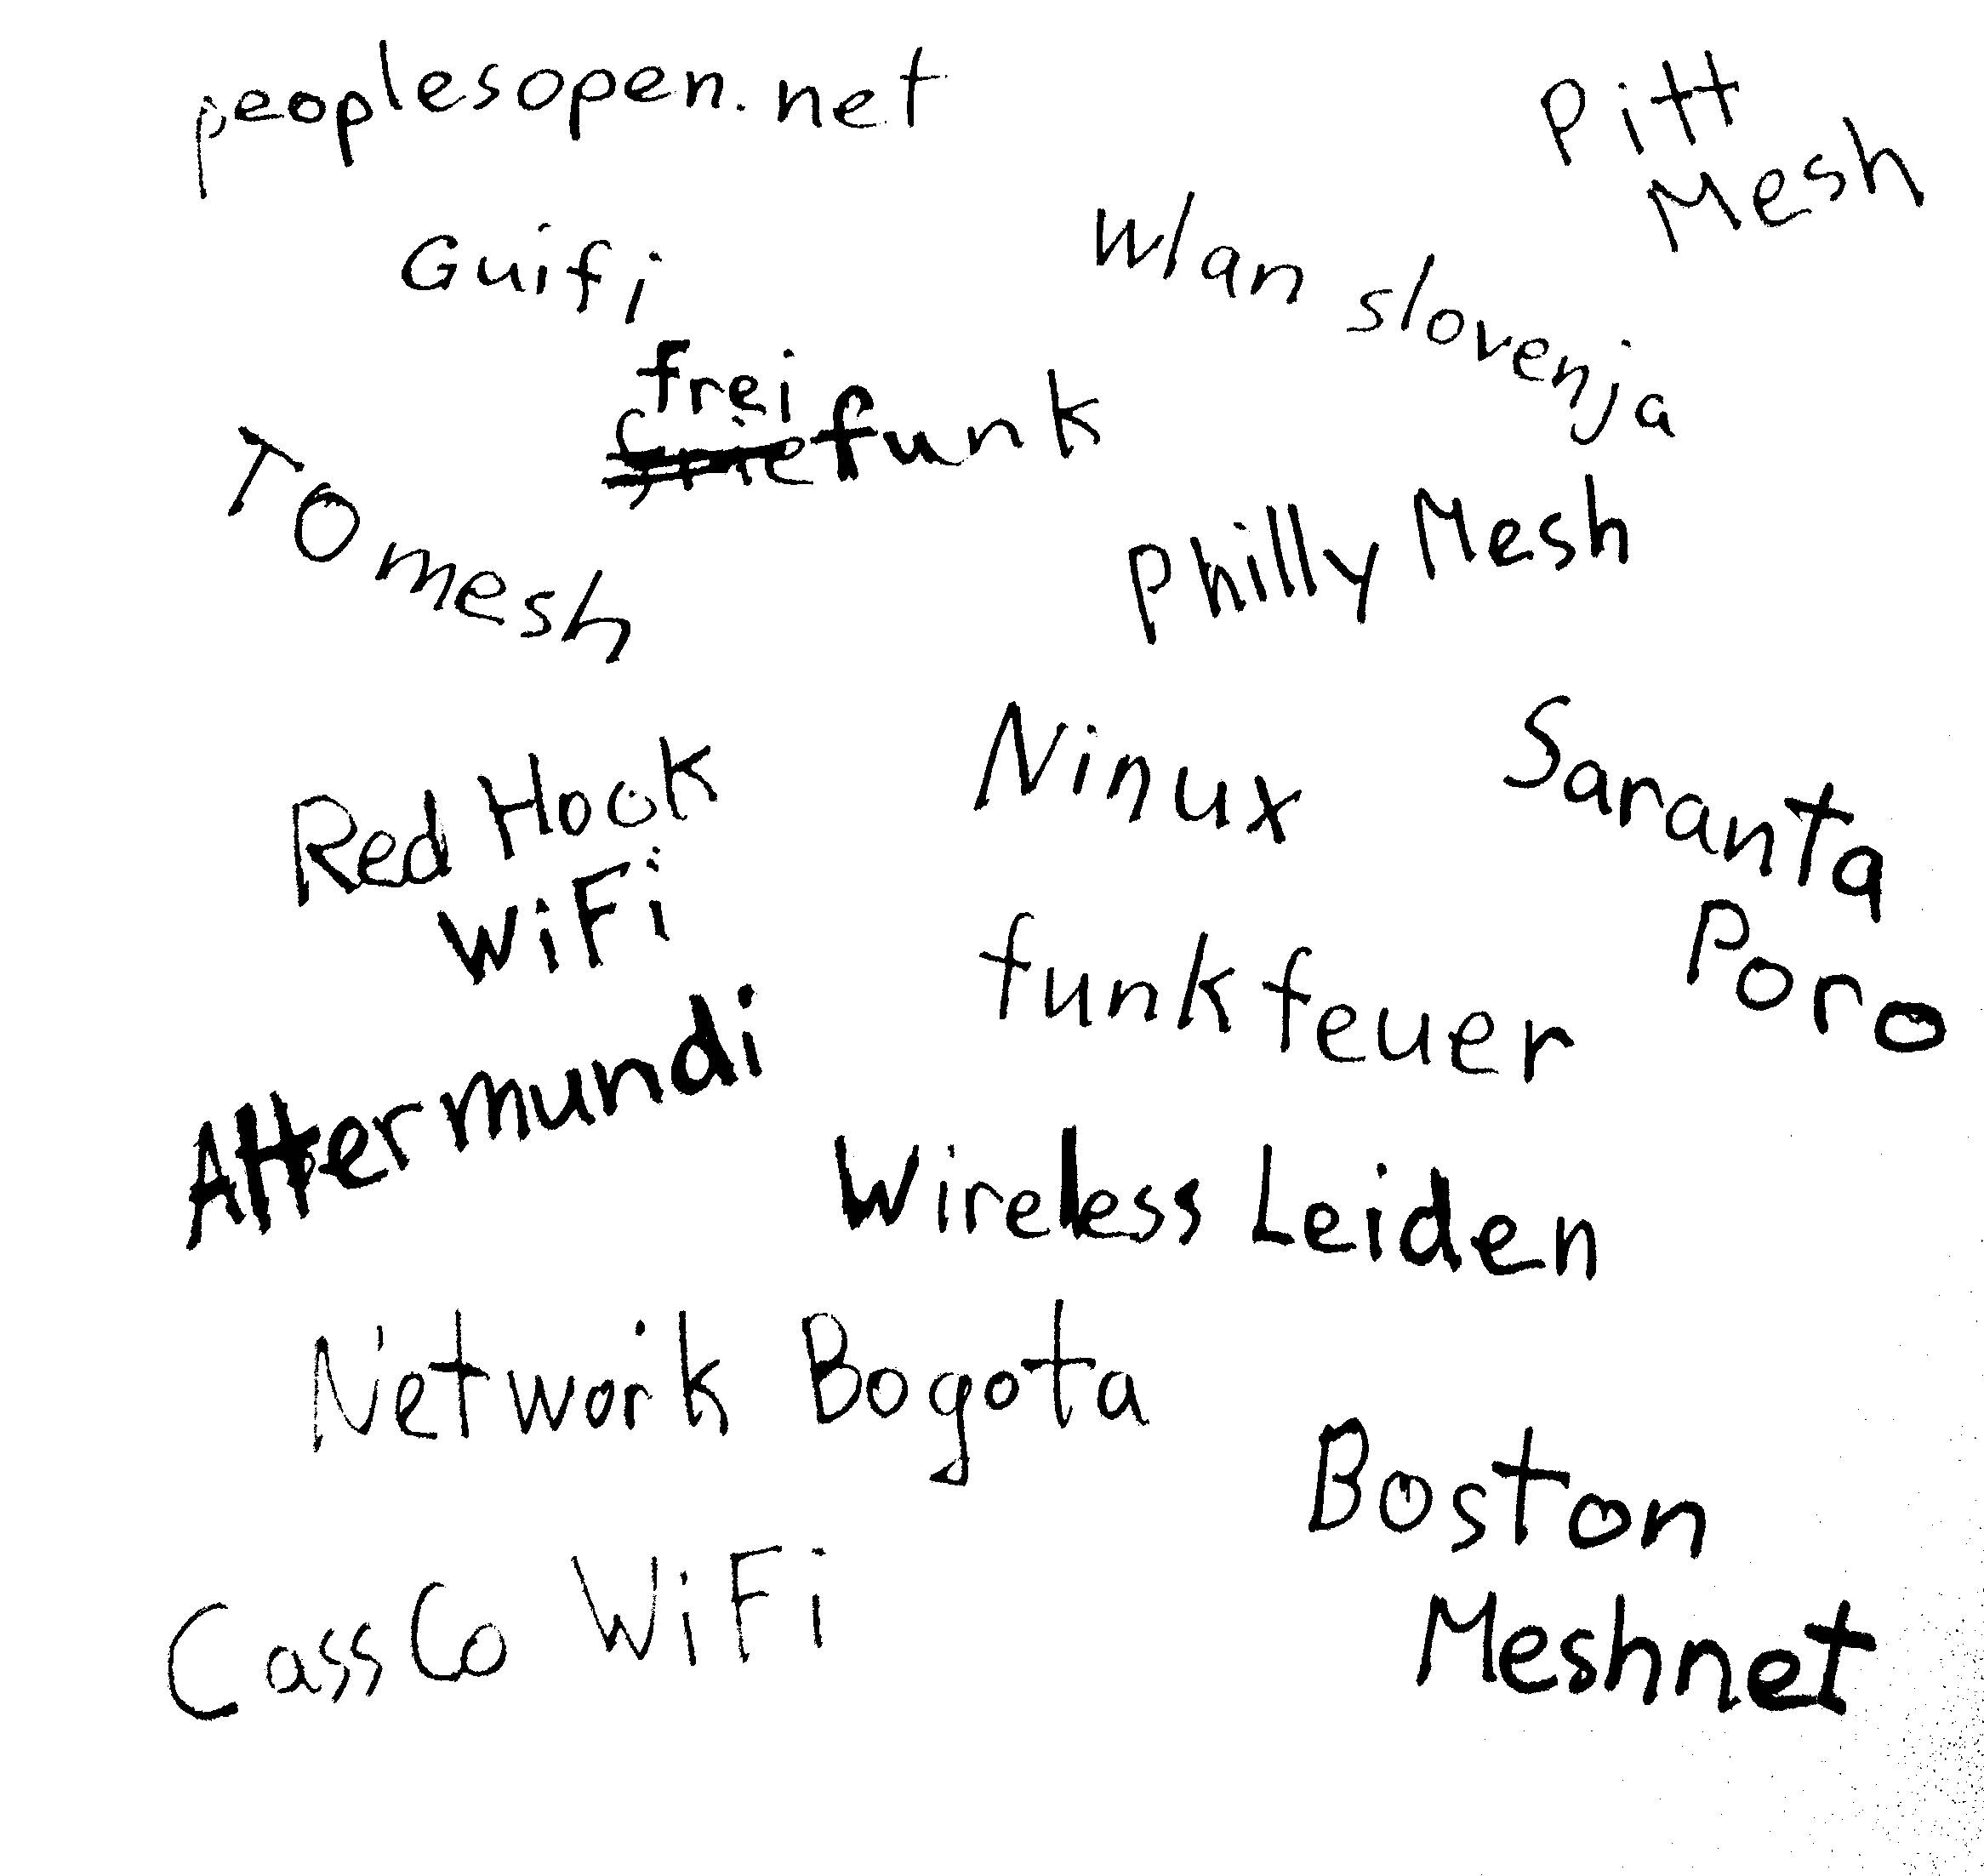 peoplesopen.net
Pitt
Mesh
Guifi
wlan slovenja
frei
funk
TOmesh
Philly Mesh
Red Hook
WiFi
Ninux
Saranta
Poro
funkfeuer
Altermundi
Wireless Leiden
Network Bogota
Boston
Meshnet
CassCo WiFi